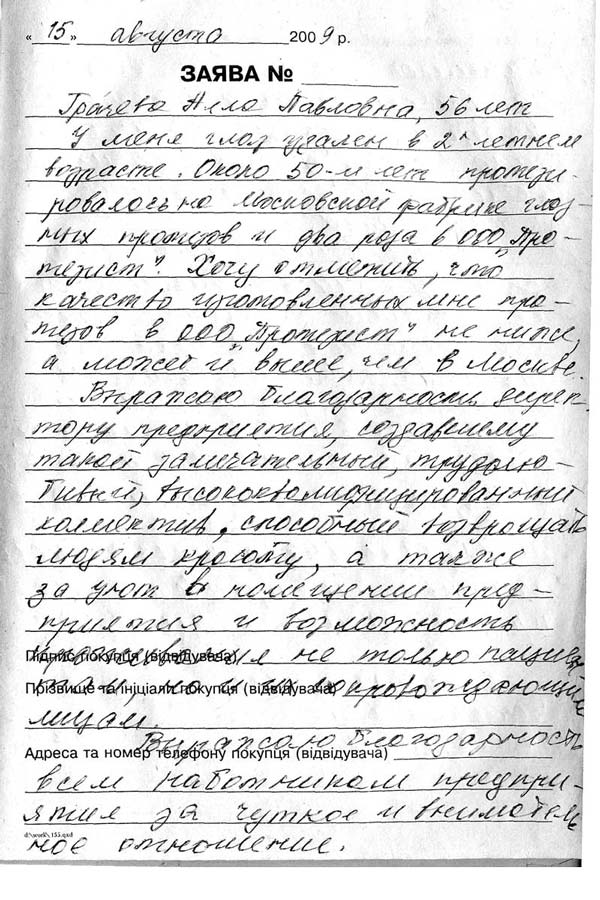 « 15 » августа 2009 р.
ЗАЯВА №
Грачева Алла Павловна, 56 лет
У меня глаз удален в 2х летнем
возрасте. Около 50-и лет протези-
ровалась на Московской фабрике глаз-
ных протезов и два раза в ООО „Про-
тезист“. Хочу отметить, что
качество изготовленных мне про-
тезов в ООО „Протезист“ не ниже,
а может и выше, чем в Москве.
Выражаю благодарность дирек-
тору предприятия, создавшему
такой замечательный, трудолю-
бивый, высококвалифицированный
коллектив, способный возвращать
людям красоту, а также
за уют в помещении пред-
приятия и возможность
Підпис покупця (відвідувача)
не только пациен-
Прізвище та ініціали покупця (відвідувача)
там, но и сопровождающим
лицам.
Выражаю благодарность
Адреса та номер телефону покупця (відвідувача)
всем работникам предпри-
ятия за чуткое и вниматель-
d:\work\.155.qxd
ное отношение.